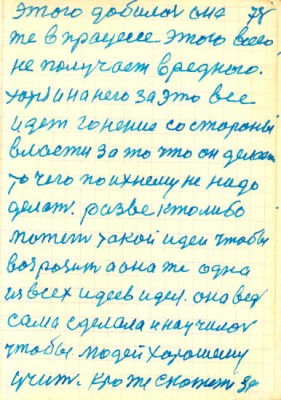 этого добился она 78
же в працессе этого всего
не получает вредного.
хотя и на него за это все
идет гонение со стороны
власти за то что он делает
то чего по ихнему не надо
делат. разве кто либо
может такой идеи чтобы
возрозит а она же одна
из всех идеев идея. она вед
сама сделала и научилос
чтобы людей хорошему
учит. кто же скажет за